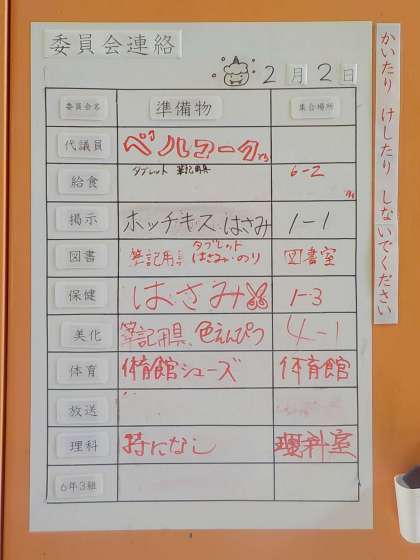 委員会連絡
2月2日
委員会名 準備物 集合場所
代議員 ベルマーク
給食 タブレット 筆記用具 6-2
掲示 ホッチキス・はさみ 1-1
図書 筆記用具 タブレット はさみ・のり 図書室
保健 はさみ 1-3
美化 筆記用具、色えんぴつ 4-1
体育 体育館シューズ 体育館
放送
理科 特になし 理科室
6年3組
かいたり けしたり しないでください